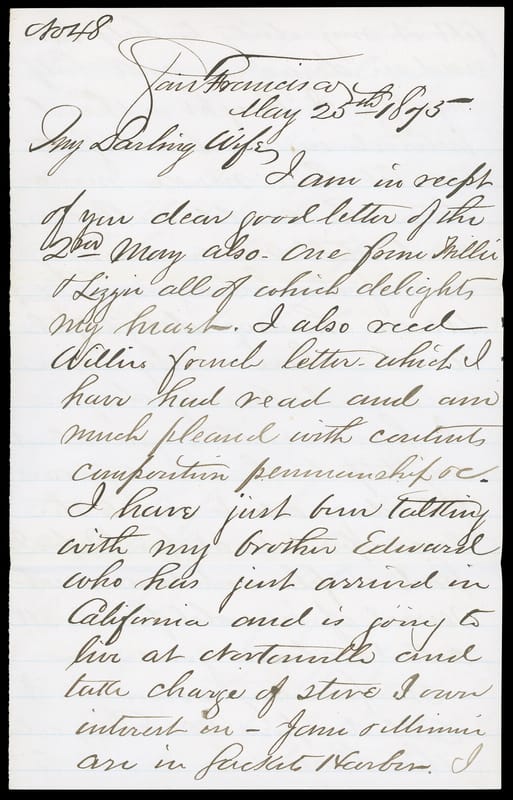 No 48
San Francisco
May 25th 1875
My Darling Wife
I am in recpt
of you dear good letter of the
2nd May also - one from Willie
& Lizzie all of which delights
my heart. I also recd
Willies french letter - which I
have had read and am
much pleasd with contents
composition penmanship &c.
I have just been talking
with my brother Edward
who has just arrived in
California and is going to
live at Nortonville and
take charge of store I own
interest in - Jane & Minnie
are in Sackets Harbor. I